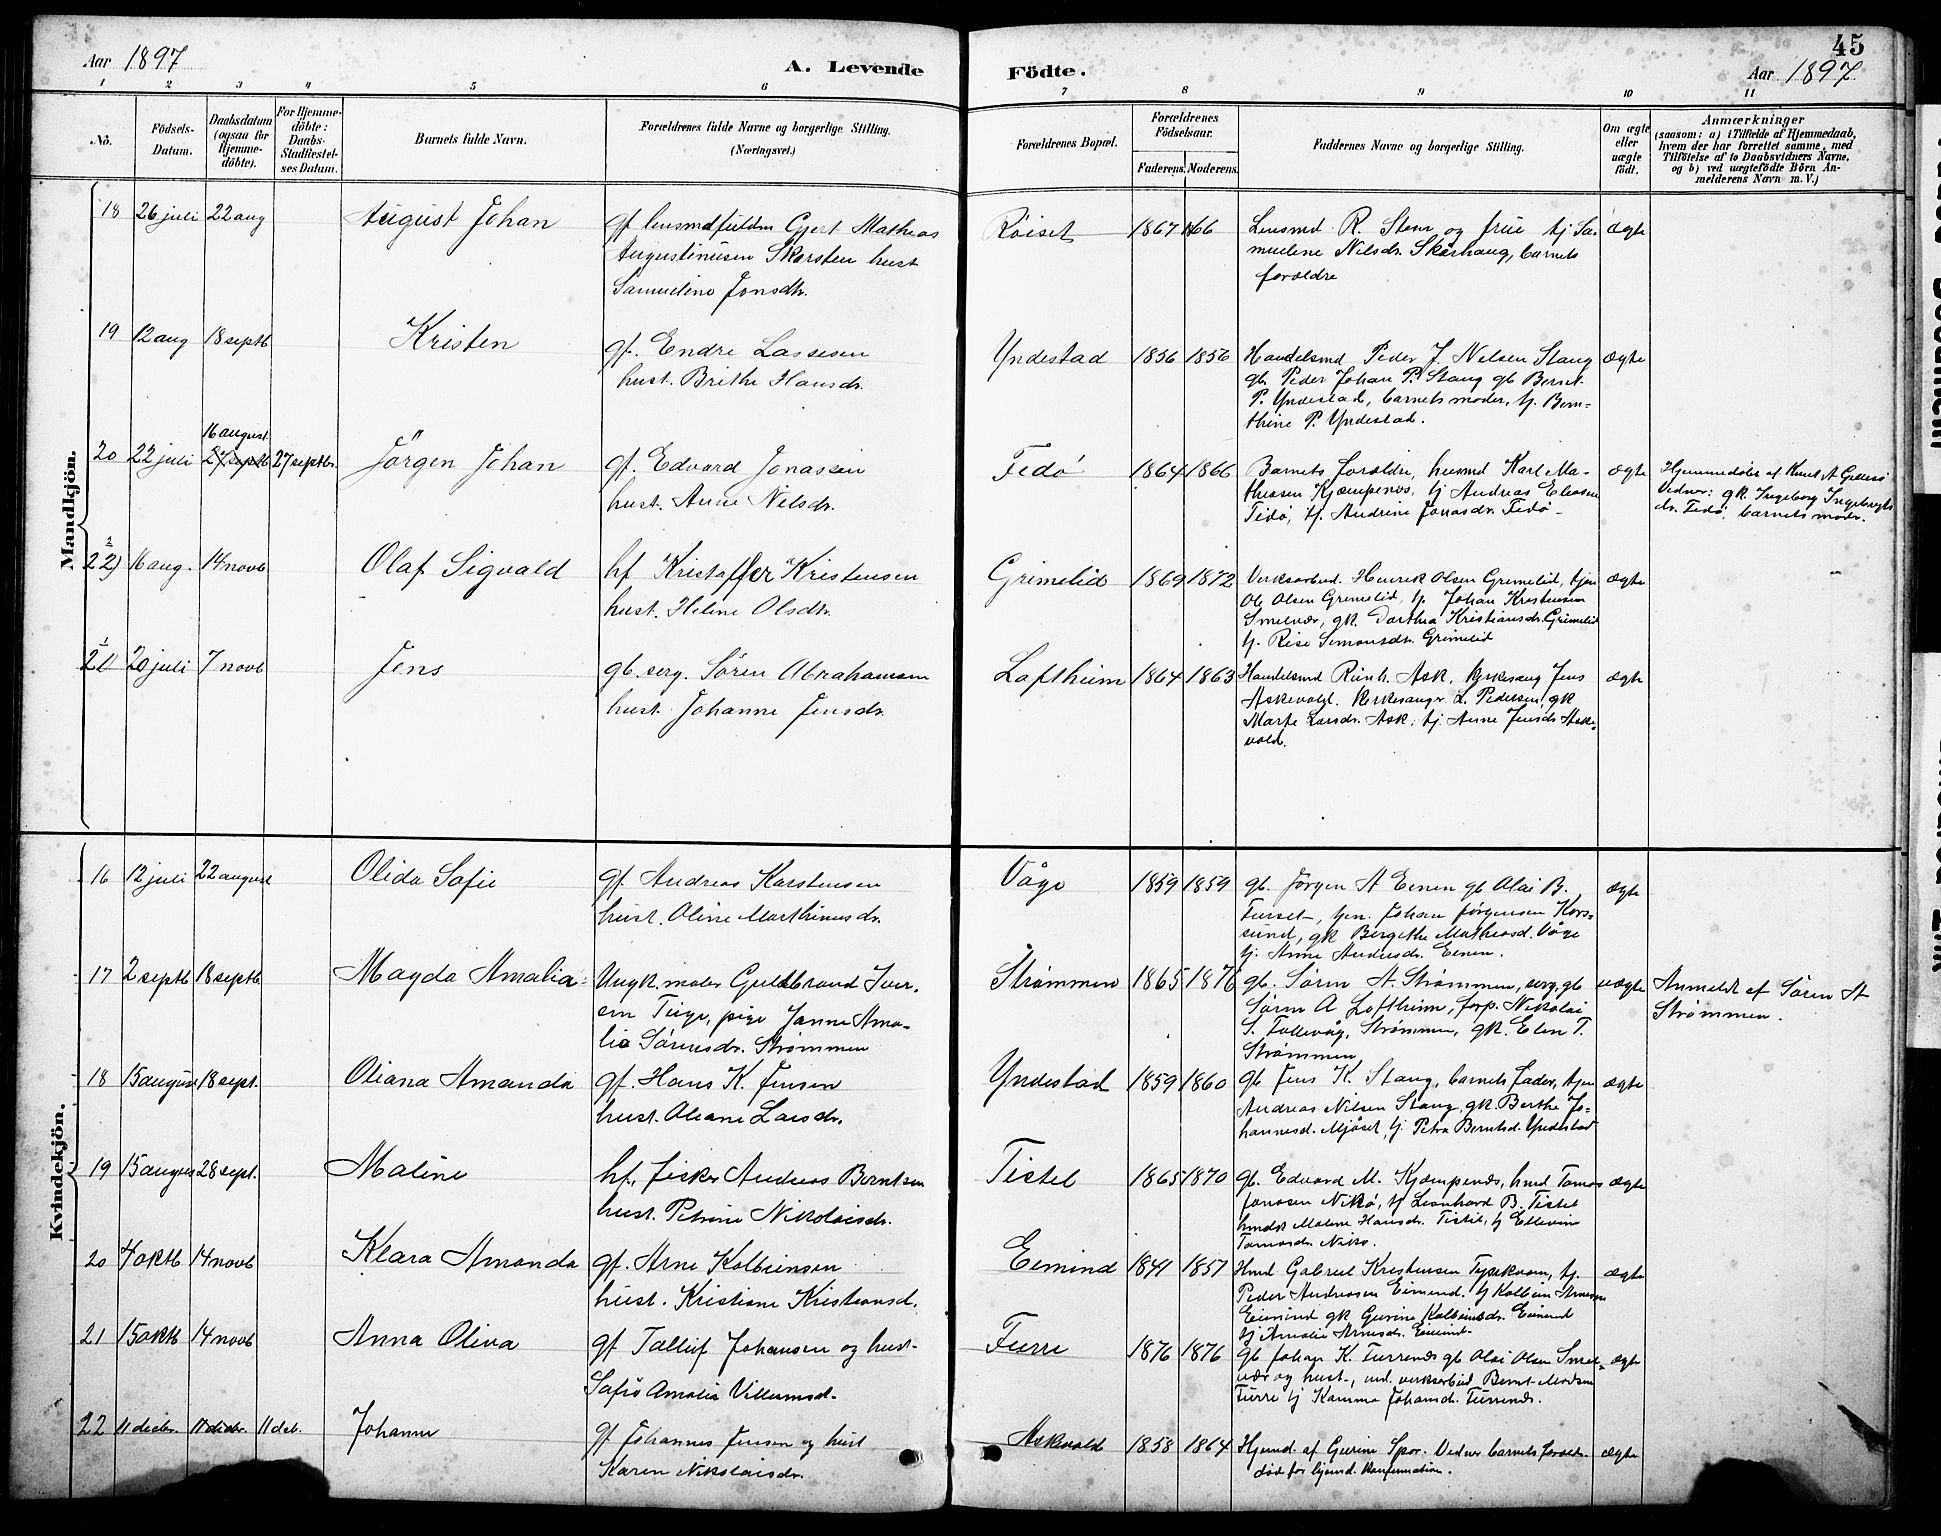 Aar 1897
A. Levende
Födte.
45
Aar 1897.
1 2 3 4 5 6 7 8 9 10 11
No.
Födsels-Datum.
Daabsdatum (ogsaa for Hjemme-döbte).
For Hjemme-döbte: Daabs-Stadfestel-ses Datum.
Barnets fulde Navn.
Forældrenes fulde Navne og borgerlige Stilling. (Næringsvei.)
Forældrenes Bopæl.
Forældrenes Födselsaar.
Faderens. Moderens.
Faddernes Navne og borgerlige Stilling.
Om ægte eller uægte födt.
Anmærkninger
(saasom: a) i Tilfælde af Hjemmedaab, hvem der har forrettet samme, med Tilföielse af to Daabsvidners Navne, og b) ved uægtefödte Börn An-melderens Navn m. V.)
Mandkjön.
18 26 juli 22 aug August Johan gf lensmdfuldm Gjert Mathias
Augustinusen Skorsten hust
Samueline Jonsdtr.
Röiset 1867 1866 Lensmd. R. Steen og frue tj Sa-
mueline Nilsdr. Skarhaug, barnets
forældre
ægte
19 12 aug 18 septb Kristen gf. Endre Lassesen
hust. Brithe Hansdr.
Yndestad 1856 1856 Handelsmd Peder J. Nelsen Stang
gb Peder Johan P. Stang gb Bernt
P. Yndestad, barnets moder, tj. Bern-
thine P. Yndestad.
ægte
20 22 juli 16 august 27 septb 27 septbr. Jörgen Johan gf. Edvard Jonassen
hust. Anne Nilsdr.
Tedö 1864 1866 Barnets forældre, husmd Karl Ma-
thiasen Kjempenes, tj Andreas Eliasen
Tedö, tj. Andrine Jonasdr. Tedö
ægte
Hjemmedöbt af Knut A
Vidner: gk. Ingeborg Ingebrigts
dr. Tedö, barnets moder.
22) 16 aug. 14 novb Olaf Sigvald hf Kristoffer Kristensen
hust. Helene Olsdtr.
Grimelid 1869 1872 Verksarbeid. Henrik Olsen Grimelid, tjen
Ole Olsen Grimelid, tj. Johan Kristensen
Smelvær, gk. Dorthea Kristiansdr. Grimelid
tj. Rise Simonsdtr. Grimelid
ægte
21 20 juli 7 novb Jens gb. serg. Sören Abrahamsen
hust. Johanne Jensdr.
Loftheim 1864 1863 Handelsmd Reinh. Ask, kirkesang Jens
Askevold. Kirkesanger L. Pedersen, gk
Marte Larsdr. Ask, tj. Anne Jensdr Aske-
vold.
ægte
Kvindekjön.
16 12 juli 22 august Olida Sofie gf. Andreas Karstensen
hust. Oline Marthinusdr.
Våge 1859 1859 gb. Jörgen A Eenen gb Olai B.
Furset, tjen. Johan Jörgensen Kors-
sund, gk Bergithe Mathiasd. Våge
tj. Anne Andersdr. Eenen.
ægte
17 2 septb 18 septb Magda Amalia Ungk. maler Guldbrand Iver-
sen Tuge, pige Janne Ama-
lia Sörensdr. Strömmen
Strömmen 1865 1876 gb. Sören A. Strömmen, serg, gb
Sören A Loftheim, forp. Nikolai
S. Follevåg, Strömmen, gk. Elen T.
Strömmen
uægte
Anmeldt af Sören A
Strömmen.
18 15 august 18 sept. Oliana Amanda gf. Hans K. Jensen
hust. Oleane Larsdr.
Yndestad 1859 1860 gb Jens K. Stang, barnets fader, tjen
Andreas Nilsen Stang, gk. Berthe Jo-
hannesd. Mjöset, tj. Petra Berntsd. Yndestad
ægte
19 15 august 28 sept. Maline hf. fisker Andreas Berntsen
hust. Petrine Nikolaisdr.
Tistel 1865 1870 gb. Edvard M. Kjempenes, hmd Tomas
Jonasen Nikö, tj Leonhard B. Tistel
hmdk Malene Hansdr. Tistel, tj Ellevine
Tomasdr. Nikö.
ægte
20 4 oktb 14 novb Klara Amanda gf. Arne Kolbeinsen
hust. Kristiane Kristiansd.
Eimind 1841 1857 Hmd Gabriel Kristensen Tyskvam, tj.
Peder Andreasen Eimind. tj Kolbein Arnesen
Eimind gk Gurine Kolbeinsdr. Eimind
tj Amalie Arnesdr. Eimind.
ægte
21 15 oktb 14 novb Anna Oliva gf Tollief Johansen og hust.
Sofie Amalia Villumsd.
Furre 1876 1876 gb Johan K. Furrenes gb Olai Olsen Smel-
vær og hust., ind. verksarbeid Bernt Madsen
Furre tj Kamma Johansd. Furrenes.
ægte
22 11 decbr. 11 decbr. 11 deb. Johanne gf Johannes Jensen og hust
Karen Nikolaisdr.
Askevold 1858 1864 Hjemd. af Gurine Spor. Vidner barnets forældr.
död för hjemd. konfirmation.
ægte